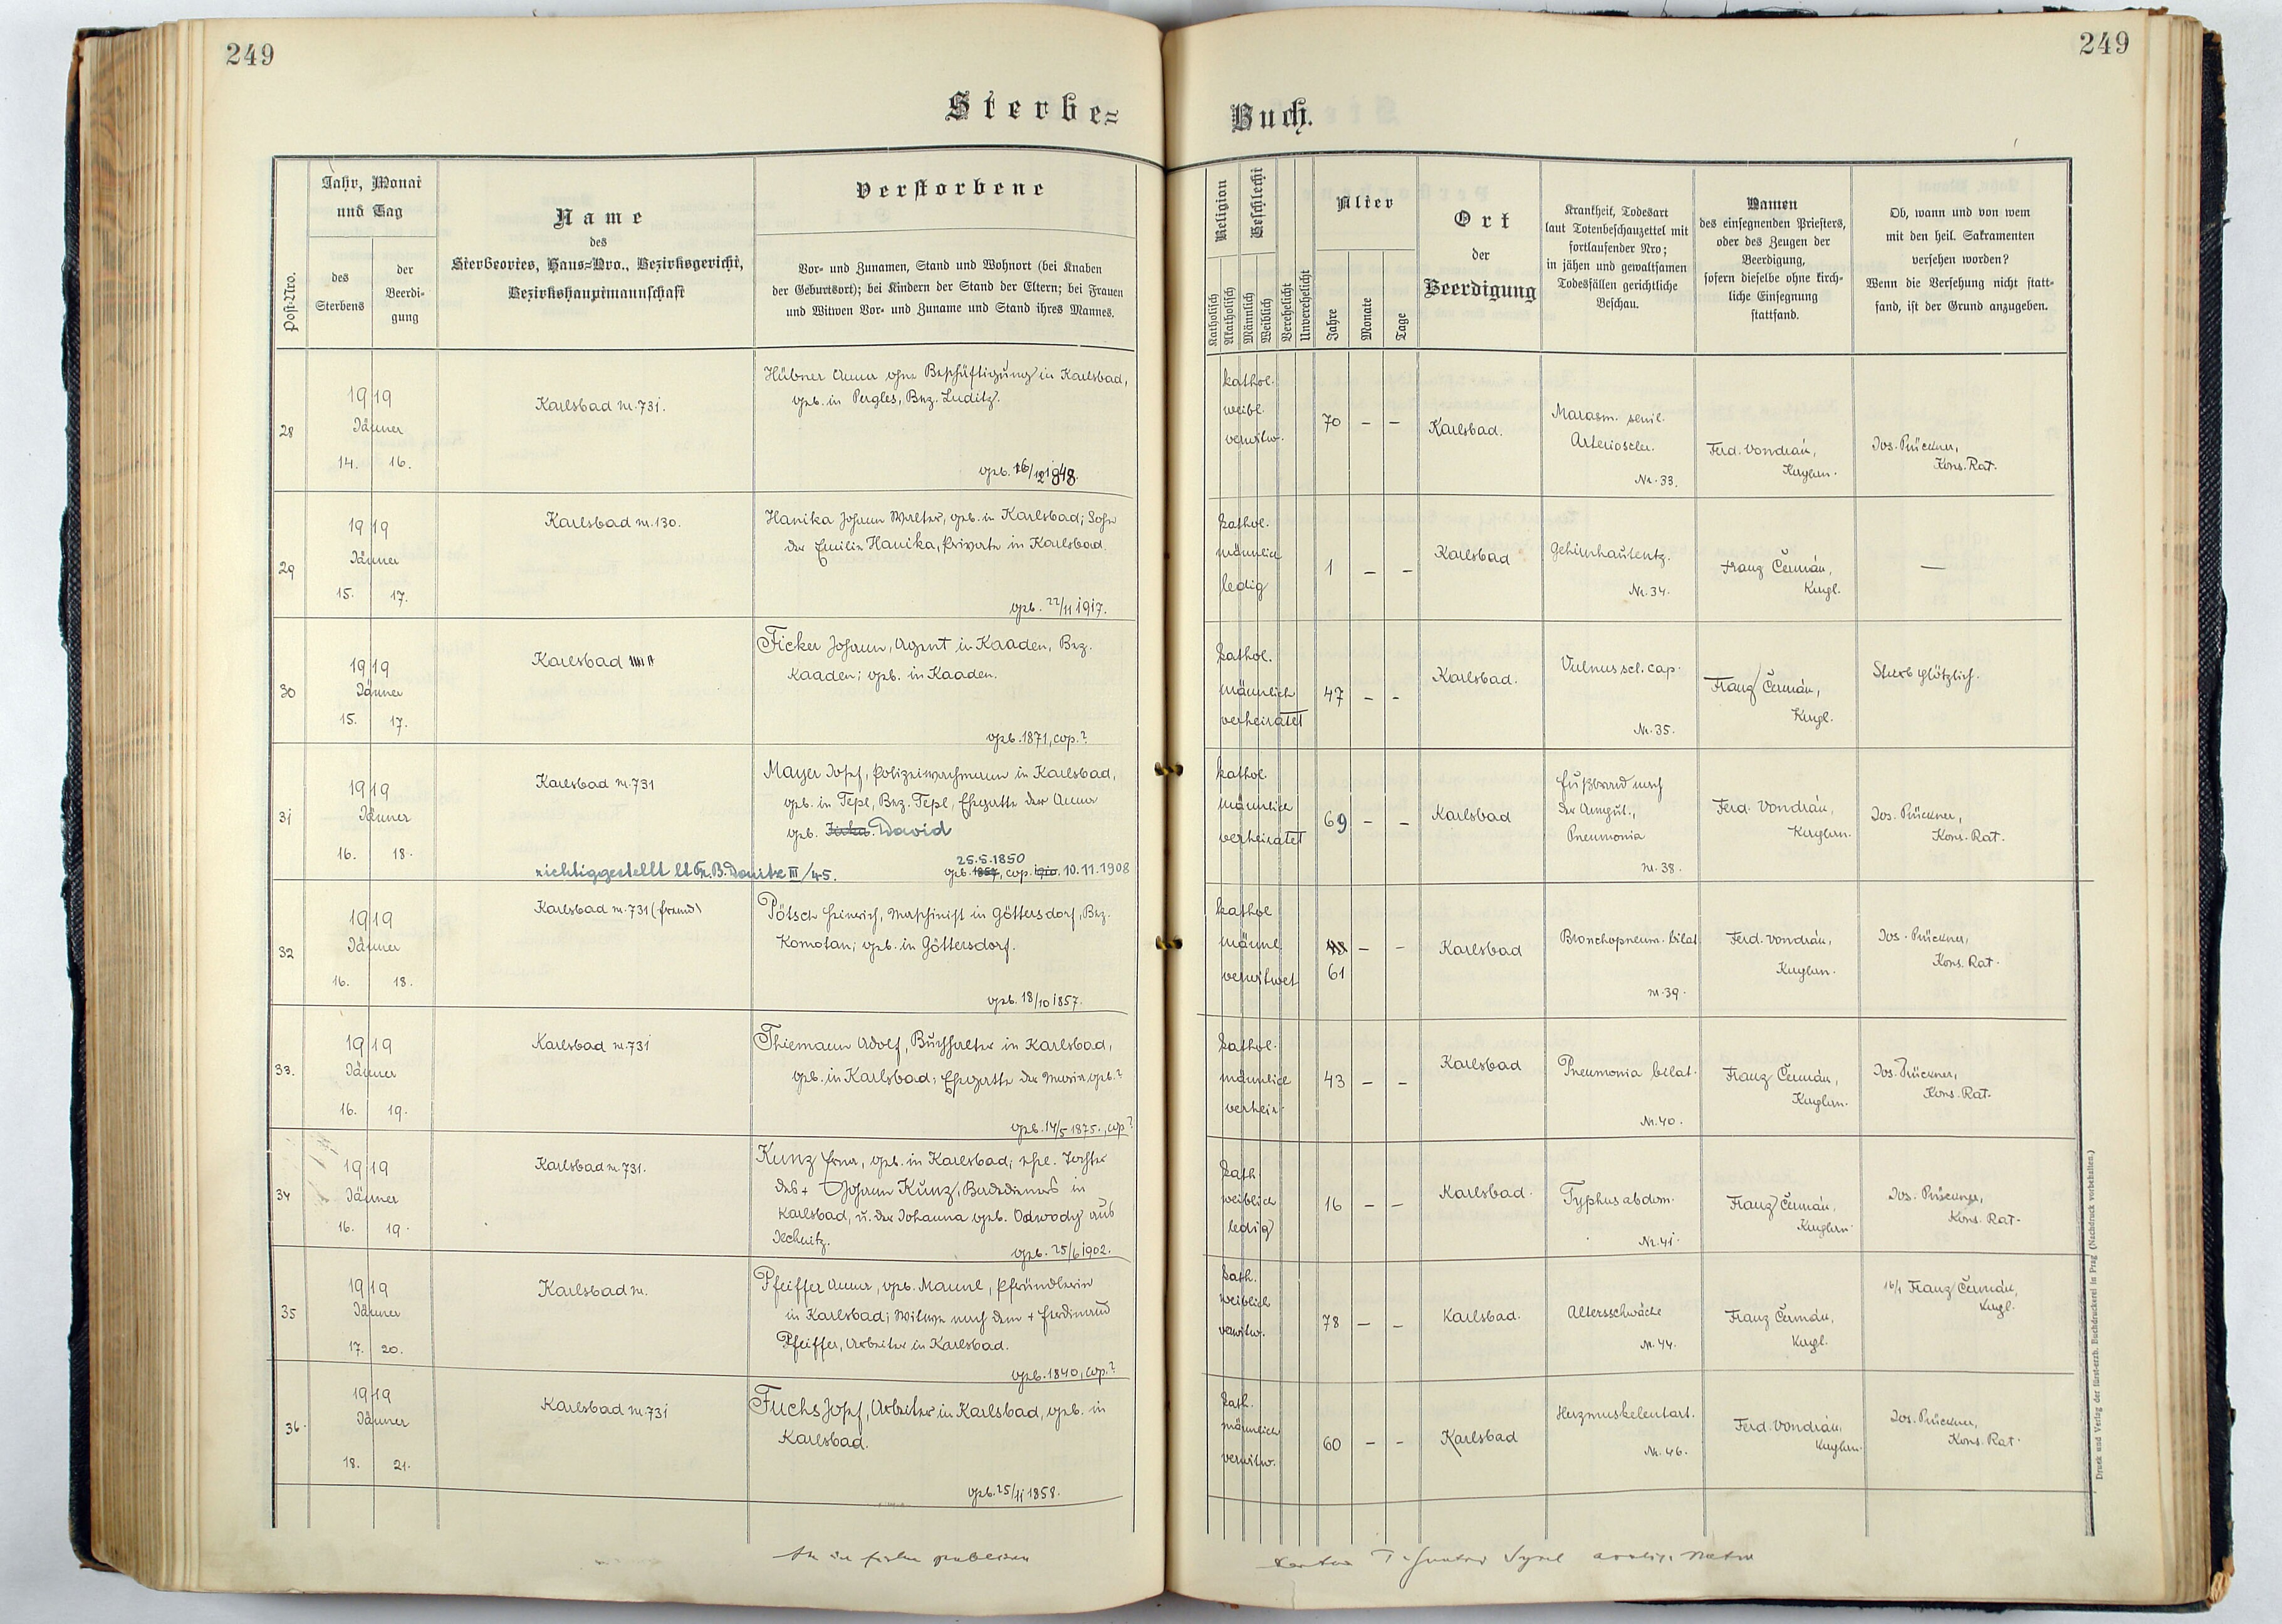 249
249
Sterbe=
Buch.
Post-Nro.
Jahr, Monat
und Tag
des
Sterbens
der
Beerdi-
gung
Name
des
Sterbeortes, Haus=Nro., Bezirksgericht,
Bezirkshauptmannschaft
Verstorbene
Vor- und Zunamen, Stand und Wohnort (bei Knaben
der Geburtsort); bei Kindern der Stand der Eltern; bei Frauen
und Witwen Vor- und Zuname und Stand ihres Mannes.
Religion
Geschlecht
Katholisch
Akatholisch
Männlich
Weiblich
Verehelicht
Unverehelicht
Alter
Jahre
Monate
Tage
Ort
der
Beerdigung
Krankheit, Todesart
laut Totenbeschauzettel mit
fortlaufender Nro;
in jähen und gewaltsamen
Todesfällen gerichtliche
Beschau.
Namen
des einsegnenden Priesters,
oder des Zeugen der
Beerdigung,
sofern dieselbe ohne kirch-
liche Einsegnung
stattfand.
Ob, wann und von wem
mit den heil. Sakramenten
versehen worden?
Wenn die Versehung nicht statt-
fand, ist der Grund anzugeben.
28
1919
Jänner
14. 16.
Karlsbad nr. 731.
Hübner Anna ohne Beschäftigung in Karlsbad,
geb. in Pergles, Bez. Luditz.
geb. 16/12 1848.
kathol.
weibl.
verwitw.
70 – –
Karlsbad.
Marasm. senil.
Arterioscler.
Nr. 33.
Ferd. Vondrán,
Kuglan.
Jos. Prückner,
Kons. Rat.
29
1919
Jänner
15. 17.
Karlsbad nr. 130.
Hanika Johann Walter, geb. in Karlsbad; Sohn
der Emilie Hanika, Private in Karlsbad.
geb. 22/11 1917.
kathol.
männlich
ledig
1 – –
Karlsbad
Gehirnhautentz.
Nr. 34.
Franz Čermán,
Kugl.
—
30
1919
Jänner
15. 17.
Karlsbad
Ficker Johann, Agent in Kaaden, Bez.
Kaaden; geb. in Kaaden.
geb. 1871, cop.?
kathol.
männlich
verheiratet
47 – –
Karlsbad.
Vulnus scl. cap.
Nr. 35.
Franz Čermán,
Kugl.
Starb plötzlich.
31
1919
Jänner
16. 18.
Karlsbad nr. 731
Mayer Josef, Polizeiwachmann in Karlsbad,
geb. in Tepl, Bez. Tepl, Ehegatte der Anna
geb. David
25.5.1850
richtiggestellt lt III/45.
geb. 1857, cop. 1910. 10.11.1908
kathol.
männlich
verheiratet
69 – –
Karlsbad
Fußbrand nach
der Amput.,
Pneumonia
nr. 38.
Ferd. Vondrán,
Kuglan.
Jos. Prückner,
Kons. Rat.
32
1919
Jänner
16. 18.
Karlsbad nr. 731 (fremd)
Pötsch Heinrich, Maschinist in Göttersdorf, Bez.
Komotau; geb. in Göttersdorf.
geb. 18/10 1857.
kathol
männl
verwitwet
48 – –
61
Karlsbad
Bronchopneum. bilat.
nr. 39.
Ferd. Vondrán,
Kuglan.
Jos. Prückner,
Kons. Rat.
33.
1919
Jänner
16. 19.
Karlsbad nr. 731
Thiemann Adolf, Buchhalter in Karlsbad,
geb. in Karlsbad; Ehegatte der Maria, geb.?
geb. 14/5 1875., cop?
kathol.
männlich
verheir.
43 – –
Karlsbad
Pneumonia bilat.
Nr. 40.
Franz Čermán,
Kuglan.
Jos. Prückner,
Kons. Rat.
34
1919
Jänner
16. 19.
Karlsbad nr. 731.
Kunz Erna, geb. in Karlsbad; ehel. Tochter
des + Johann Kunz, Badedieners in
Karlsbad, u. der Johanna geb. Odwody aus
Dechnitz.
geb. 25/6 1902.
kath
weiblich
ledig
16 – –
Karlsbad.
Typhus abdom.
Nr. 41.
Franz Čermán,
Kuglan.
Jos. Prückner,
Kons. Rat.
35
1919
Jänner
17. 20.
Karlsbad nr.
Pfeiffer Anna, geb. Mannl, Pfründlerin
in Karlsbad; Witwe nach dem + Ferdinand
Pfeiffer, Arbeiter in Karlsbad.
geb. 1840, cop.?
kath.
weiblich
verwitw.
78 – –
Karlsbad.
Altersschwäche
Nr. 44.
Franz Čermán,
Kugl.
16/1 Franz Čermán,
Kugl.
36.
1919
Jänner
18. 21.
Karlsbad nr. 731
Fuchs Josef, Arbeiter in Karlsbad, geb. in
Karlsbad.
geb. 25/11 1858.
kath.
männlich
verwitw.
60 – –
Karlsbad
Herzmuskelentart.
Nr. 46.
Ferd. Vondrán,
Kuglan.
Jos. Prückner,
Kons. Rat.
Druck und Verlag der fürst-erzb. Buchdruckerei in Prag (Nachdruck vorbehalten.)